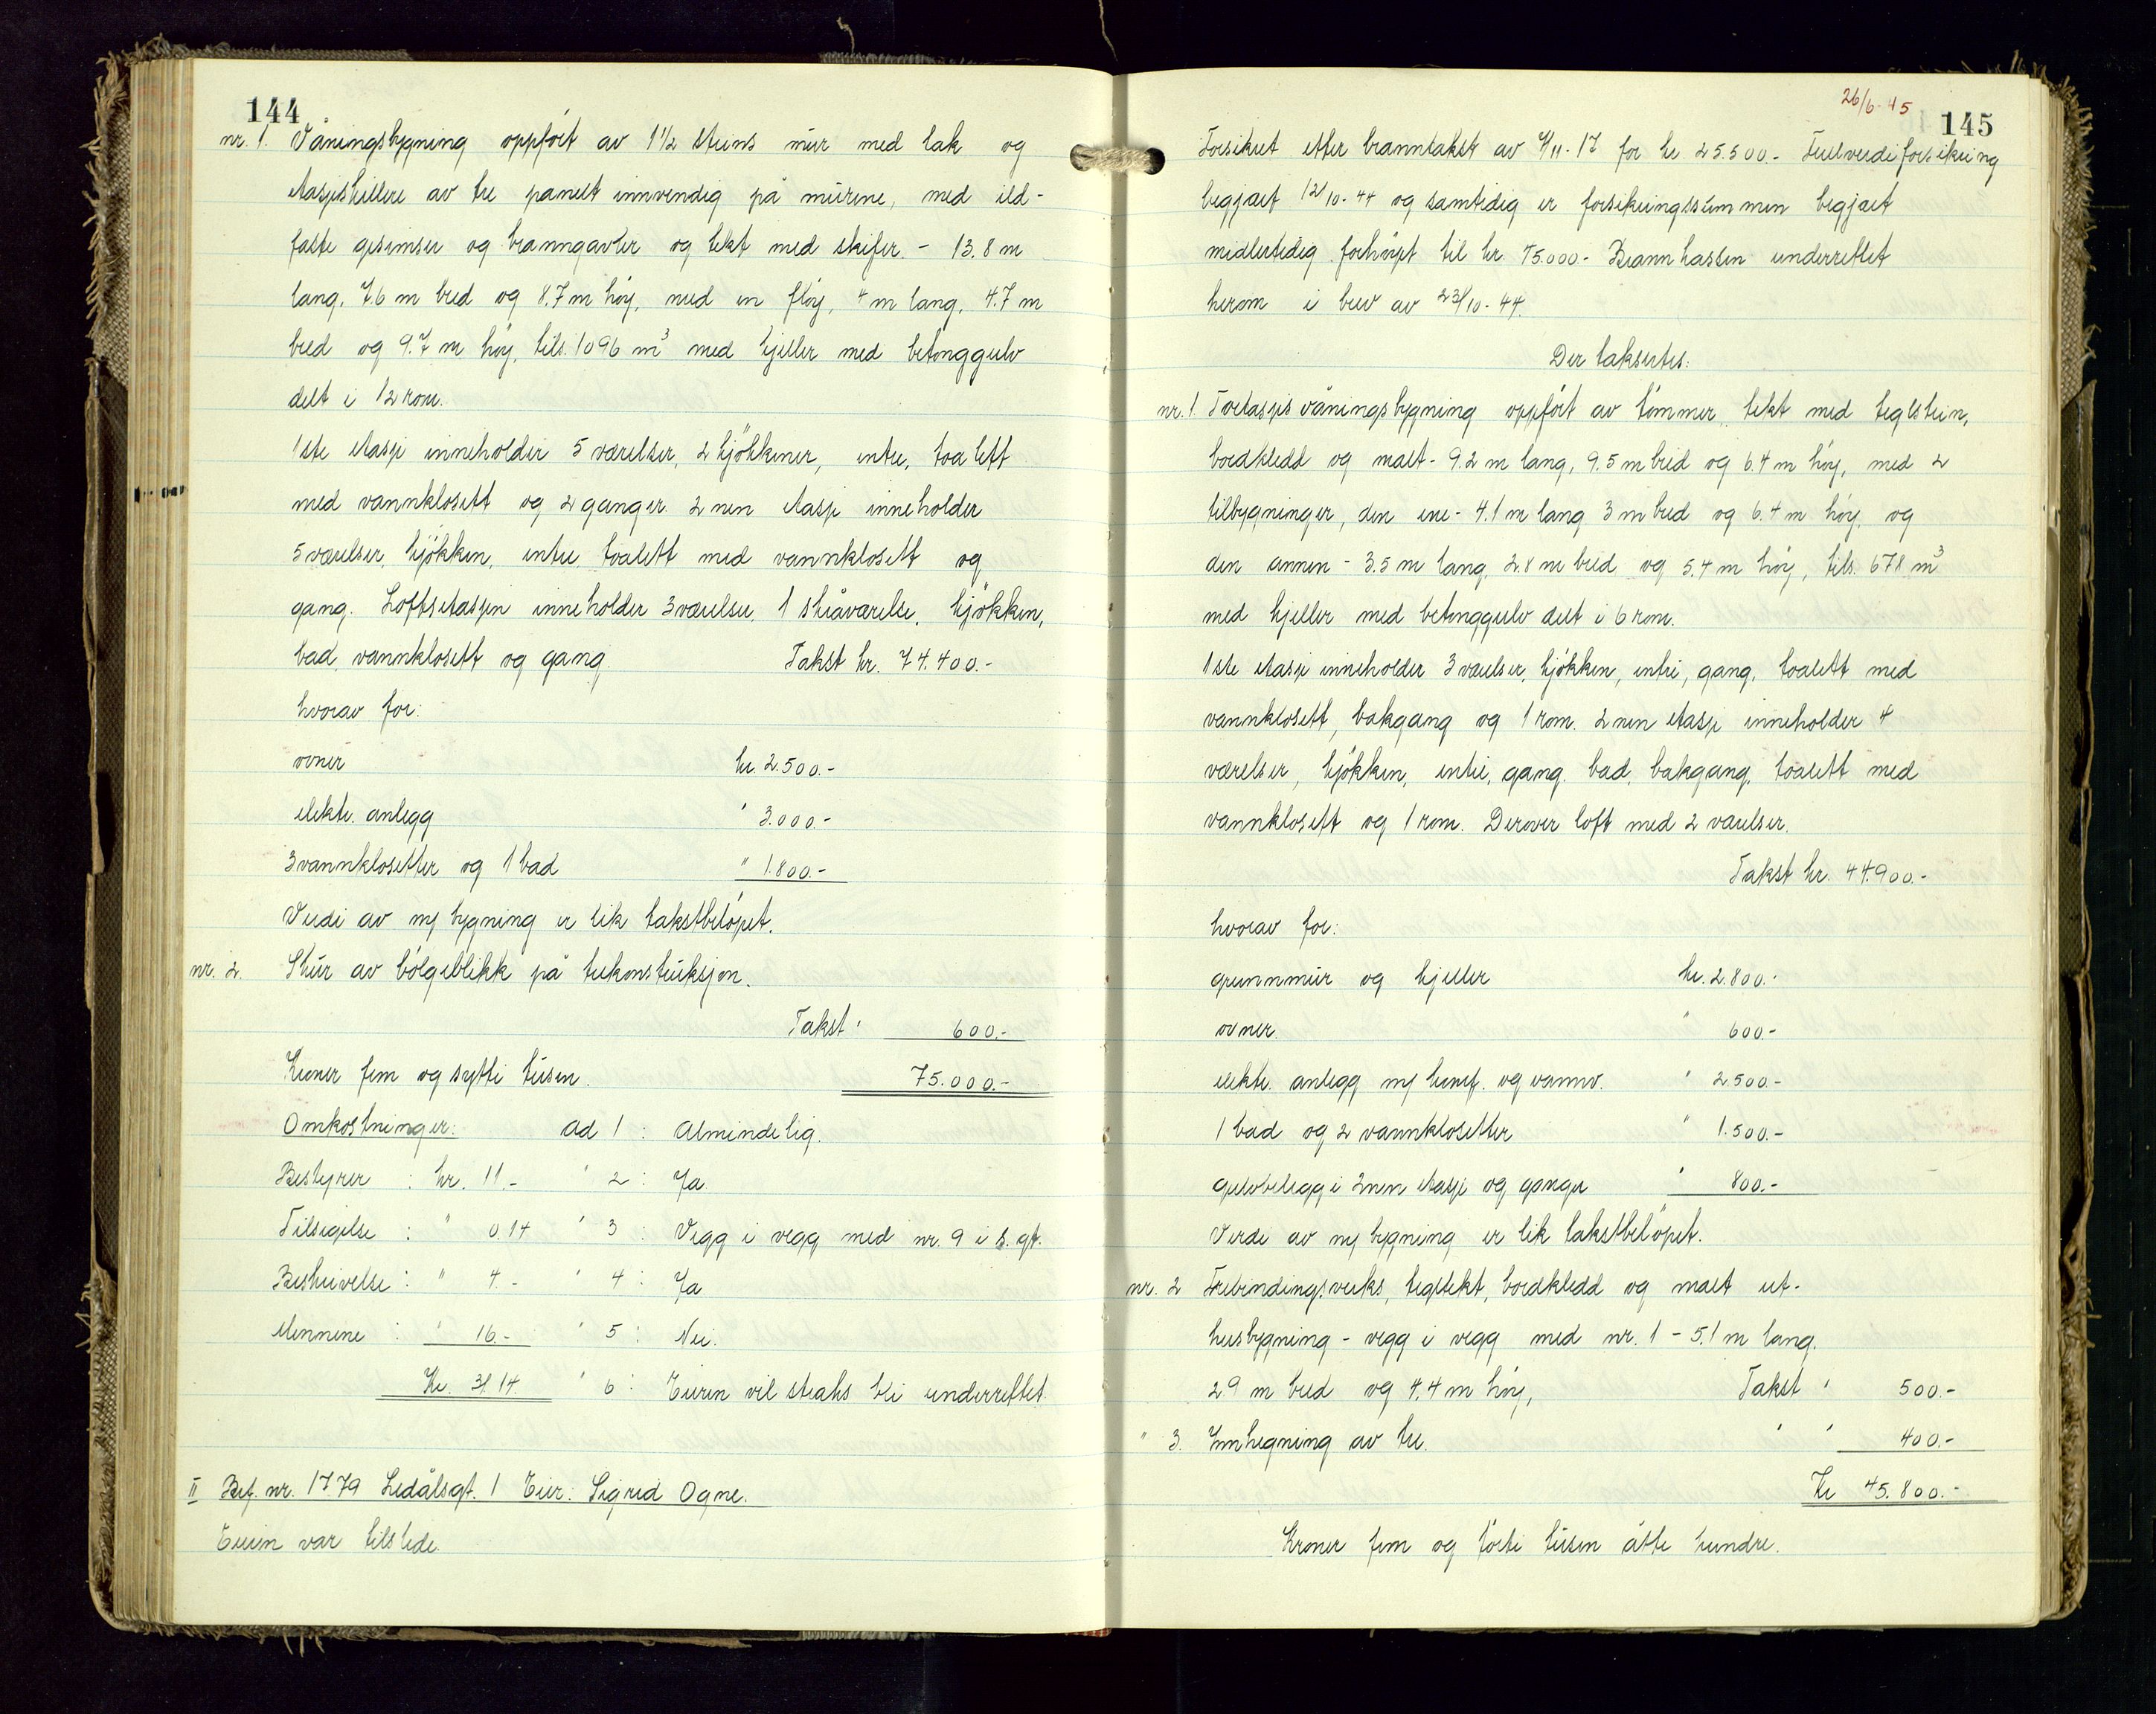 144
nr. 1. Våningsbygning oppført av 1 1/2 steins mur med tak og
etasjeskillere av tre panelt innvendig på murene, med ild-
faste gesimser og branngavler og tekt med skifer. - 13.8 m
lang, 7.6 m bred og 8.7 m høy, med en fløy, 4 m lang, 4.7 m
bred og 9.7 m høy, tils. 1096 m³ med kjeller med betonggulv
delt i 12 rom.
1ste etasje inneholder 5 værelser, 2 kjökkener, entre, toalett
med vannklosett og 2 ganger. 2nen etasje inneholder
5 værelser, kjökken, entre, toalett med vannklosett og
gang. Loftsetasjen inneholder 3 værelser, 1 skråværelse, kjökken,
bad, vannklosett og gang. Takst kr. 74.400.-
hvorav for:
ovner kr. 2.500.-
elektr. anlegg " 3.000.-
3 vannklosetter og 1 bad " 1.800.-
Verdi av ny bygning er lik takstbeløpet.
nr. 2. Skur av bølgeblikk på trekonstruksjon.
Takst " 600.-
Kroner fem og sytti tusen. 75.000.-
Omkostninger: ad 1 : Almindelig.
Bestyrer : kr. 11.- " 2 : Ja
Tilsigelse : " 0,14 " 3 : Vegg i vegg med nr. 9 i s. gt.
Beskrivelse : " 4.- " 4 : Ja
Mennene : " 16.- " 5 : Nei.
Kr. 31.14 " 6 : Eieren vil straks bli underrettet.
II Bef. nr. 1779 Ledålsgt. 1 Eier: Sigrid Ogne.
Eieren var tilstede.
26/6-45
145
Forsikret etter branntakst av 4/11-17 for kr. 25.500.- Fullverdiforsikring
begjært 12/10-44 og samtidig er forsikringssummen begjært
midlertidig forhøyet til kr. 75.000.- Brannkassen underrettet
herom i brev av 23/10-44.
Der takseres:
nr. 1. Toetasjes våningsbygning oppført av tömmer, tekt med teglstein,
bordkledd og malt - 9.2 m lang, 9.5 m bred og 6.4 m høy, med 2
tilbygninger, den ene - 4.1 m lang 3 m bred og 6.4 m høy, og
den annen - 3.5 m lang, 2.8 m bred og 5.4 m høy, tils. 678 m³
med kjeller med betonggulv delt i 6 rom.
1ste etasje inneholder 3 værelser, kjøkken, entre, gang, toalett med
vannklosett, bakgang og 1 rom. 2nen etasje inneholder 4
værelser, kjøkken, entre, gang, bad, bakgang, toalett med
vannklosett og 1 rom. Derover loft med 2 værelser.
Takst kr. 44.900.-
hvorav for:
grunnmur og kjeller kr. 2.800.-
ovner. " 600.-
elektr. anlegg m/ komf. og vannv. " 2.500.-
1 bad og 2 vannklosetter " 1.500.-
gulvbelegg i 2nen etasje og ganger " 800.-
Verdi av ny bygning er lik takstbeløpet.
nr. 2 Trebindingsverks, tegltekt, bordkledd og malt ut-
husbygning - vegg i vegg med nr. 1 - 5.1 m lang,
2.9 m bred og 4.4 m høy, Takst " 500.-
" 3. Innhegning av tre. " " 400.-
Kr 45.800.-
Kroner fem og förti tusen åtte hundre.